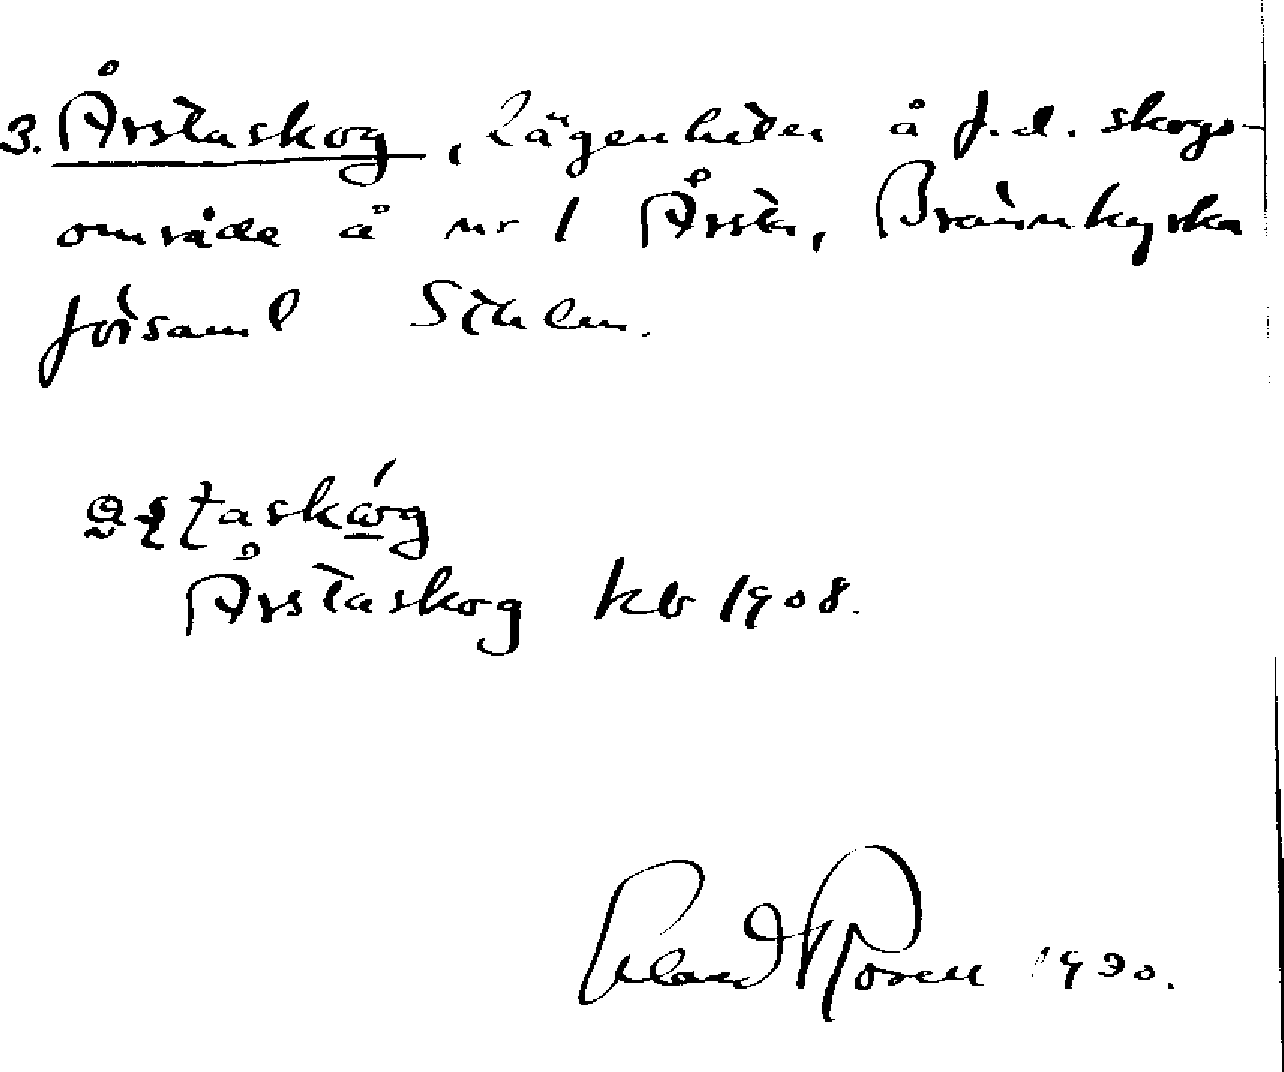 3. Årstaskog, Lägenheter å f.d. skogs-
område å nr 1 Årsta, Brännkyrka
församl Sthlm.
Årstaskog kb 1908.
Erland Rosell 1930.